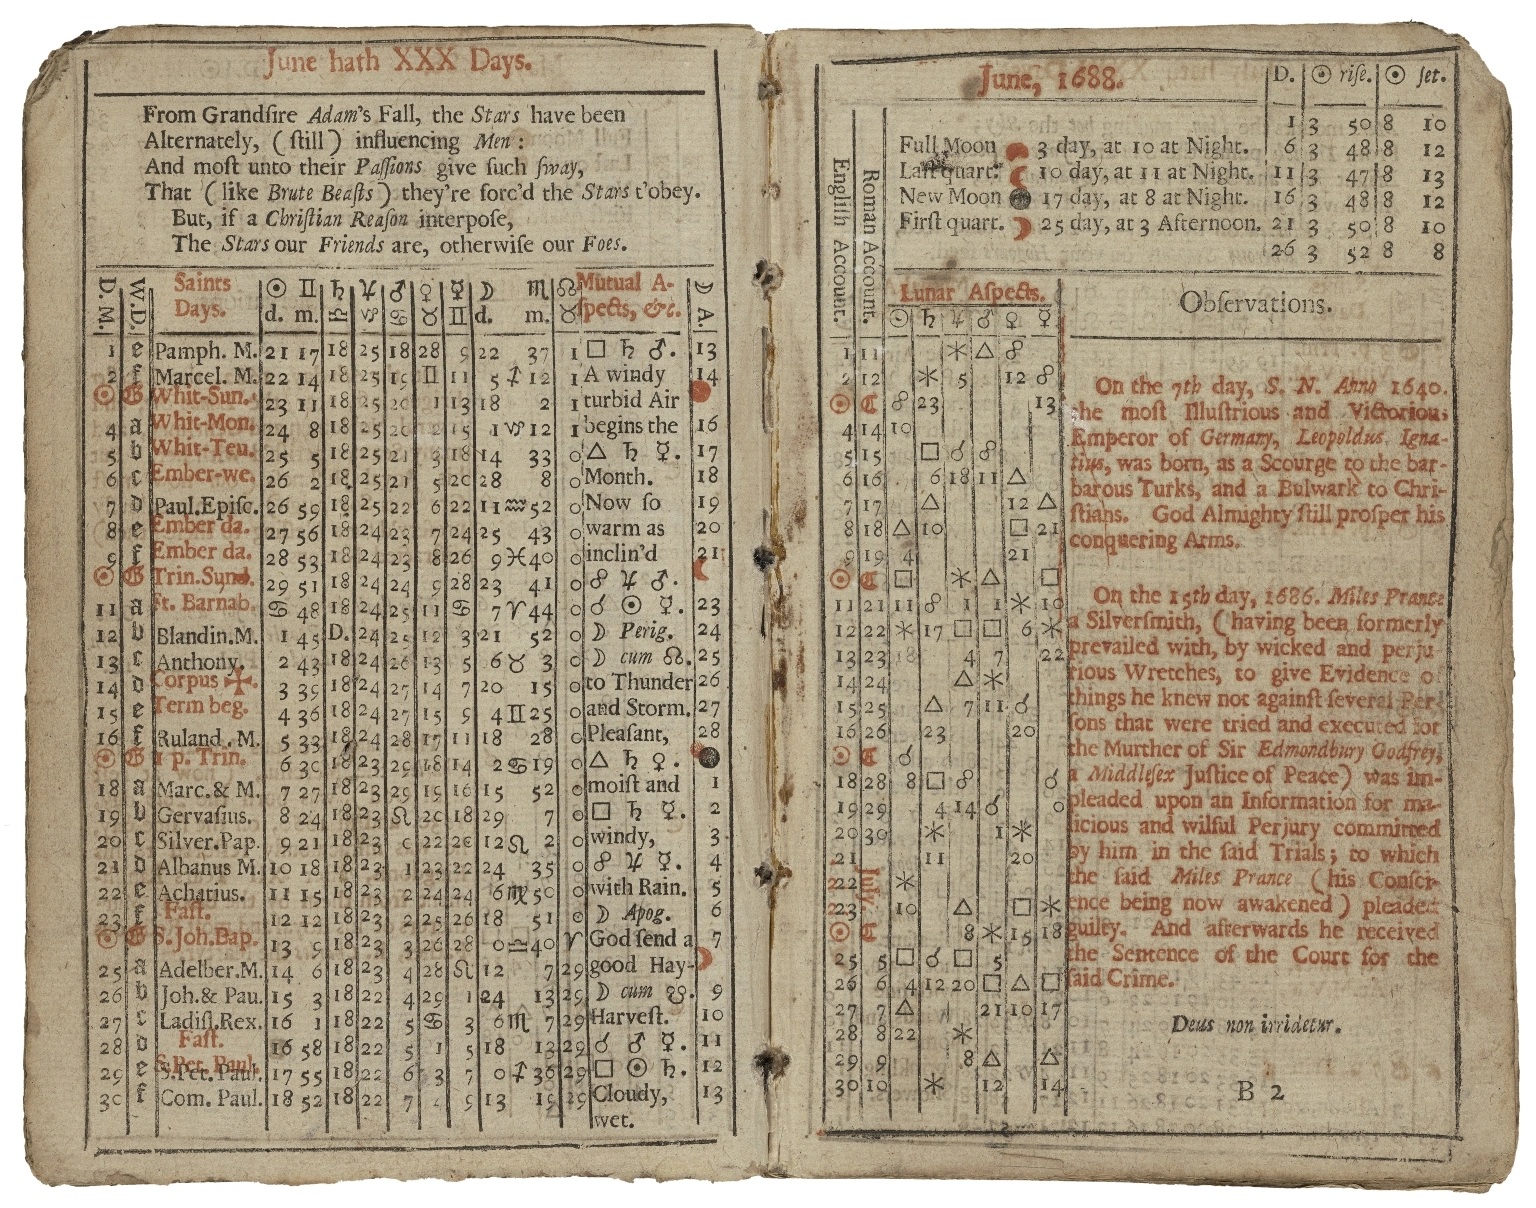 June hath XXX Days.
From Grandſire Adam's Fall, the Stars have been
Alternately, (ſtill) influencing Men:
And moſt unto their Paſſions give ſuch ſway,
That (like Brute Beaſts) they're forc'd the Stars t'obey.
But, if a Chriſtian Reaſon interpoſe,
The Stars our Friends are, otherwiſe our Foes.
D. M. W. D. Saints Days. ☉ ♊ ♄ ♃ ♂ ♀ ☿ ☽ ♏ ☊ Mutual Aſpects, &c. ☽ A.
d. m. ♑ ♋ ♉ ♊ d. m. ♉
1 e Pamph. M. 21 17 18 25 18 28 9 22 37 1 □ ♄ ♂. 13
2 f Marcel. M. 22 14 18 25 19 ♊ 11 5 ♐ 12 1 A windy 14
☉ G Whit-Sun. 23 11 18 25 20 1 13 18 2 1 turbid Air
4 a Whit-Mon. 24 8 18 25 20 2 15 1 ♑ 12 1 begins the 16
5 b Whit-Teu. 25 5 18 25 21 3 18 14 33 0 △ ♄ ☿. 17
6 c Ember-we. 26 2 18 25 21 5 20 28 8 0 Month. 18
7 d Paul.Epiſc. 26 59 18 25 22 6 22 11 ♒ 52 0 Now ſo 19
8 e Ember da. 27 56 18 24 23 7 24 25 43 0 warm as 20
9 f Ember da. 28 53 18 24 23 8 26 9 ♓ 40 0 inclin'd 21
☉ G Trin.Sund. 29 51 18 24 24 9 28 23 41 0 ☍ ♃ ♂.
11 a ſt. Barnab. ♋ 48 18 24 25 11 ♋ 7 ♈ 44 0 ☌ ☉ ☿. 23
12 b Blandin.M. 1 45 D. 24 25 12 3 21 52 0 ☽ Perig. 24
13 c Anthony. 2 43 18 24 26 13 5 6 ♉ 3 0 ☽ cum ☊. 25
14 d Corpus ✠. 3 39 18 24 27 14 7 20 15 0 to Thunder 26
15 e Term beg. 4 36 18 24 27 15 9 4 ♊ 25 0 and Storm. 27
16 f Ruland. M. 5 33 18 24 28 17 11 18 28 0 Pleaſant, 28
☉ G 1 p. Trin. 6 30 18 23 29 18 14 2 ♋ 19 0 △ ♄ ♀.
18 a Marc.& M. 7 27 18 23 29 19 16 15 52 0 moiſt and 1
19 b Gervaſius. 8 24 18 23 ♌ 20 18 29 7 0 □ ♄ ☿. 2
20 c Silver.Pap. 9 21 18 23 0 22 20 12 ♌ 2 0 windy, 3
21 d Albanus M. 10 18 18 23 1 23 22 24 35 0 ☍ ♃ ☿. 4
22 e Achatius. 11 15 18 23 2 24 24 6 ♍ 50 0 with Rain. 5
23 f Faſt. 12 12 18 23 2 25 26 18 51 0 ☽ Apog. 6
☉ G S.Joh.Bap. 13 9 18 23 3 26 28 0 ♎ 40 ♈ God ſend a 7
25 a Adelber.M. 14 6 18 23 4 28 ♌ 12 7 29 good Hay-
26 b Joh.& Pau. 15 3 18 22 4 29 1 24 13 29 ☽ cum ☋. 9
27 c Ladiſl.Rex. 16 1 18 22 5 ♋ 3 6 ♏ 7 29 Harveſt. 10
28 d Faſt. 16 58 18 22 5 1 5 18 13 29 ☌ ♂ ☿. 11
29 e S.Pet. Paul. 17 55 18 22 6 3 7 0 ♐ 36 29 □ ☉ ♄. 12
30 f Com. Paul. 18 52 18 22 7 4 9 13 19 29 Cloudy, 13
wet.
June, 1688.
D. ☉ riſe. ☉ ſet.
1 3 50 8 10
Full Moon 3 day, at 10 at Night. 6 3 48 8 12
Laſt quart. 10 day, at 11 at Night. 11 3 47 8 13
New Moon 17 day, at 8 at Night. 16 3 48 8 12
Firſt quart. 25 day, at 3 Afternoon. 21 3 50 8 10
26 3 52 8 8
Engliſh Account.
Roman Account.
Lunar Aſpects.
☉ ♄ ♃ ♂ ♀ ☿
1 11 ✶ △ ☍
2 12 ✶ 5 12 ☍
☉ C ☍ 23 13
4 14 10
5 15 □ ☌ ☍
6 16 6 18 11 △
7 17 △ 12 △
8 18 △ 10 □ 21
9 19 4 21
☉ C □ ✶ △ □
11 21 11 ☍ 1 1 ✶ 10
12 22 ✶ 17 □ □ 6 ✶
13 23 18 4 7 22
14 24 △ ✶
15 25 △ 7 11 ☌
16 26 23 20
☉ C ☌
18 28 8 □ ☍ ☌
19 29 4 14 ☌ 0
20 30 ✶ 1 ✶
21 11 20
22 ✶
23 10 △ □ ✶
July.
☉ C 8 ✶ 15 18
25 5 □ ☌ □ 5
26 6 4 12 20 □ △ □
27 7 △ 21 10 17
28 8 22 ✶
29 9 8 △ △
30 10 ✶ 12 14
Obſervations.
On the 7th day, S. N. Anno 1640.
the moſt Illuſtrious and Victorious
Emperor of Germany, Leopoldus Igna-
tius, was born, as a Scourge to the bar-
barous Turks, and a Bulwark to Chri-
ſtians. God Almighty ſtill proſper his
conquering Arms.
On the 15th day, 1686. Miles Prance
a Silverſmith, (having been formerly
prevailed with, by wicked and perju
rious Wretches, to give Evidence of
things he knew not againſt ſeveral Per-
ſons that were tried and executed for
the Murther of Sir Edmondbury Godfrey,
a Middleſex Juſtice of Peace) was im-
pleaded upon an Information for ma-
licious and wilful Perjury committed
by him in the ſaid Trials; to which
the ſaid Miles Prance (his Conſci-
ence being now awakened) pleaded
guilty. And afterwards he received
the Sentence of the Court for the
ſaid Crime.
Deus non irridetur.
B 2